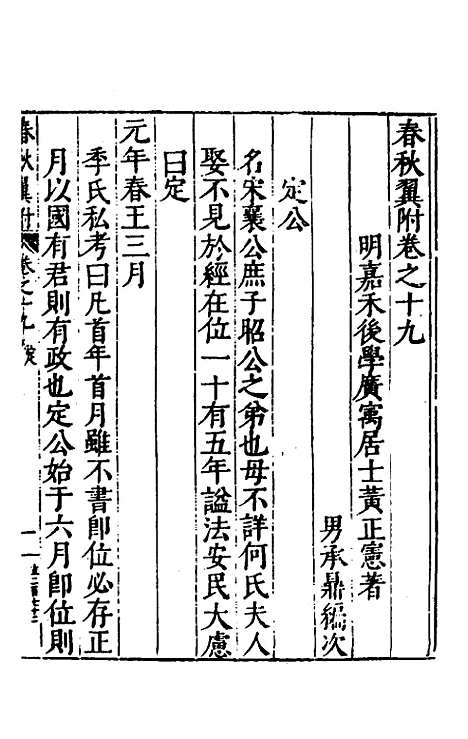 春秋翼附卷之十九
明嘉禾後學廣寓居士黃正憲著
男承鼎編次
定公
名宋襄公庶子昭公之弟也母不詳何氏夫人
娶不見於經在位一十有五年謚法安民大慮
曰定
元年春王三月
季氏私考曰凡首年首月雖不書卽位必存正
月以國有君則有政也定公始于六月卽位則
春秋翼附 卷之十九 定 一